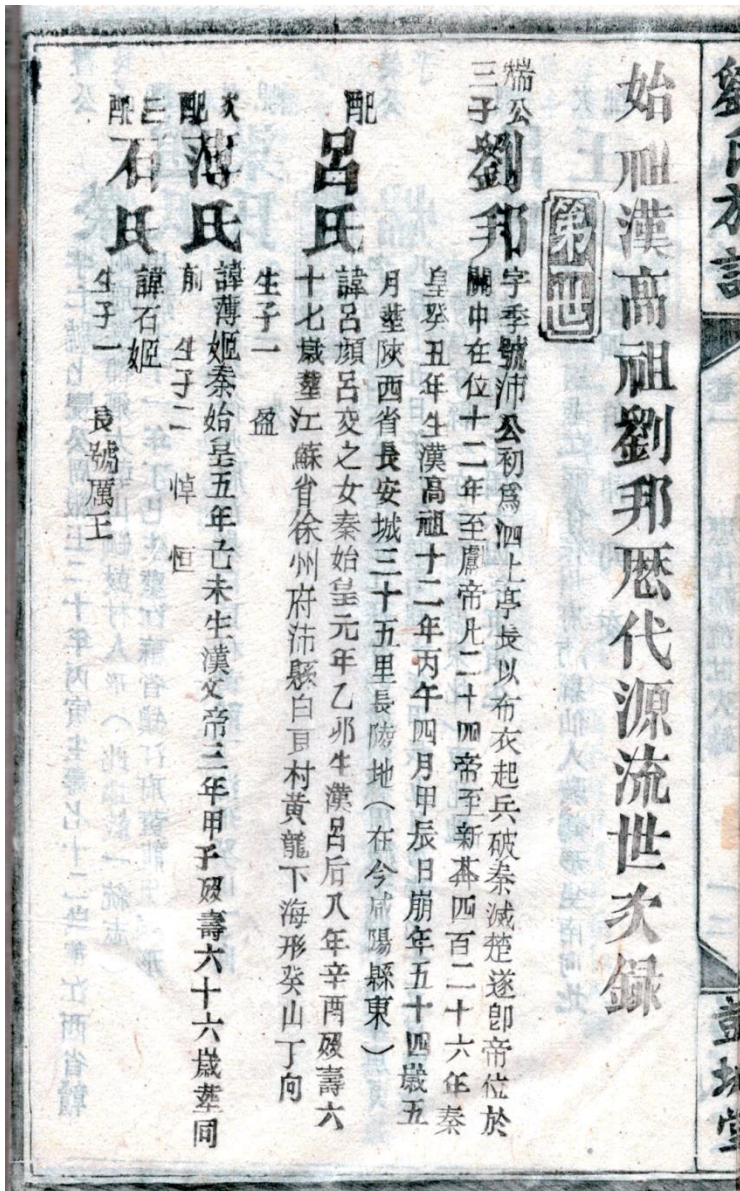 劉氏族譜
彭城堂
始祖漢高祖劉邦歷代源流世次錄
第一世
煓公三子劉邦
字季號沛公初爲泗上亭長以布衣起兵破秦滅楚遂卽帝位於
關中在位十二年至獻帝凡二十四帝至新莽四百二十六年秦
皇癸丑年生漢高祖十二年丙午四月甲辰日崩年五十四歲五
月塟陝西省長安城三十五里長陵地(在今咸陽縣東)
配呂氏
諱呂顔呂交之女秦始皇元年乙卯生漢呂后八年辛酉歿壽六
十七歲塟江蘇省徐州府沛縣白頁村黃龍下海形癸山丁向
生子一 盈
次配薄氏
諱薄姬秦始皇五年己未生漢文帝三年甲子歿壽六十六歲塟同
前 生子二 悼 恒
三配石氏
諱石姬
生子一 長號厲王